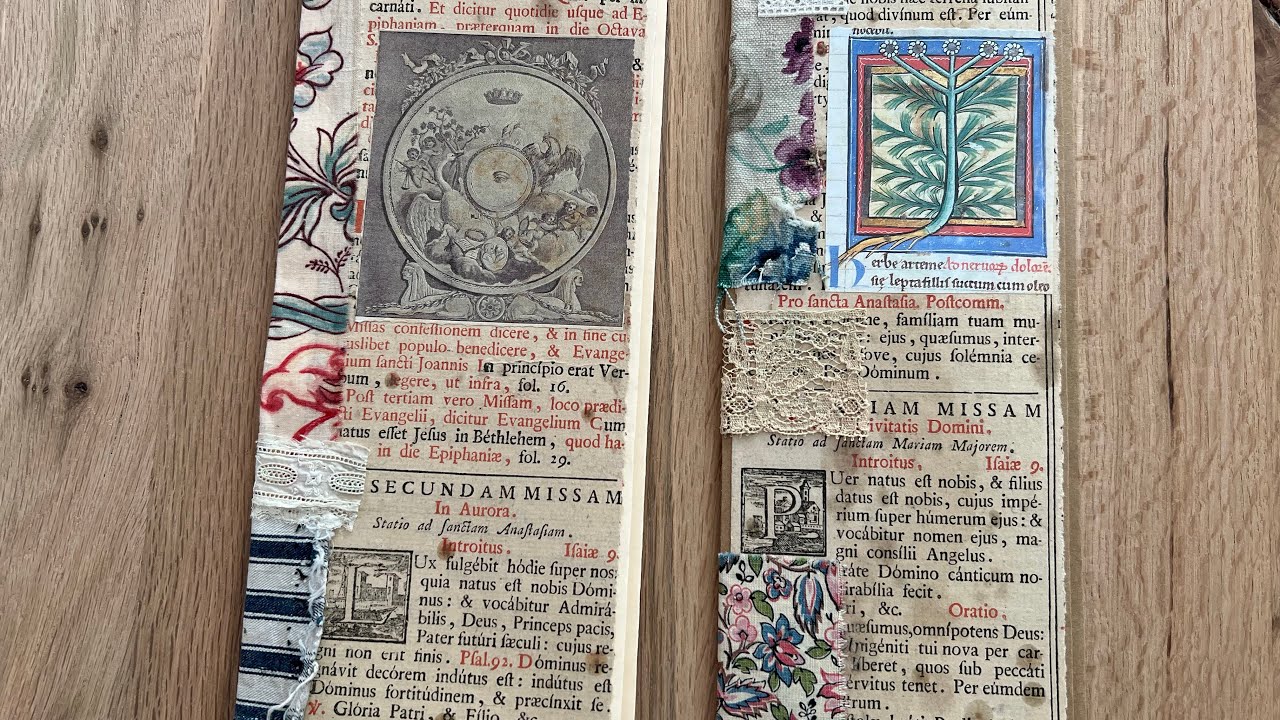 carnáti. Et dicitur quotidie uſque ad E-
piphaniam, præterquam in die Octava
S.
Miſſas confeſſionem dicere, & in fine cu-
uslibet populo benedicere, & Evange-
ium ſancti Joannis In princípio erat Ver-
bum, legere, ut infra, fol. 16.
Poſt tertiam vero Miſſam, loco prædi-
ti Evangelii, dicitur Evangelium Cum
natus eſſet Jeſus in Béthlehem, quod ha-
in die Epiphaniæ, fol. 29.
SECUNDAM MISSAM
In Aurora.
Statio ad ſanctam Anaſtaſiam.
Introitus. Iſaiæ 9.
LUx fulgébit hódie ſuper nos:
quia natus eſt nobis Dómi-
nus: & vocábitur Admirá-
bilis, Deus, Princeps pacis,
Pater futúri ſæculi: cujus re-
gni non erit finis. Pſal. 92. Dóminus re-
gnávit decórem indútus eſt: indútus eſt
Dóminus fortitúdinem, & præcínxit ſe.
℣. Glória Patri, & Fílio, &c.
quod divínum eſt. Per eúm-
nocebit.
herbe arteme
ſuccum cum oleo
Pro ſancta Anaſtaſia. Poſtcomm.
famíliam tuam mu-
ejus, quæſumus, inter-
fove, cujus ſolémnia ce-
Dóminum.
IAM MISSAM
ivitatis Domini.
Statio ad ſanctam Mariam Majorem.
Introitus. Iſaiæ 9.
PUer natus eſt nobis, & fílius
datus eſt nobis, cujus impé-
rium ſuper húmerum ejus: &
vocábitur nomen ejus, ma-
gni consílii Angelus.
táte Dómino cánticum no-
irabília fecit.
tri, &c. Oratio.
quæſumus, omnípotens Deus:
nigéniti tui nova per car-
líberet, quos ſub peccáti
ervitus tenet. Per eúmdem
trum.